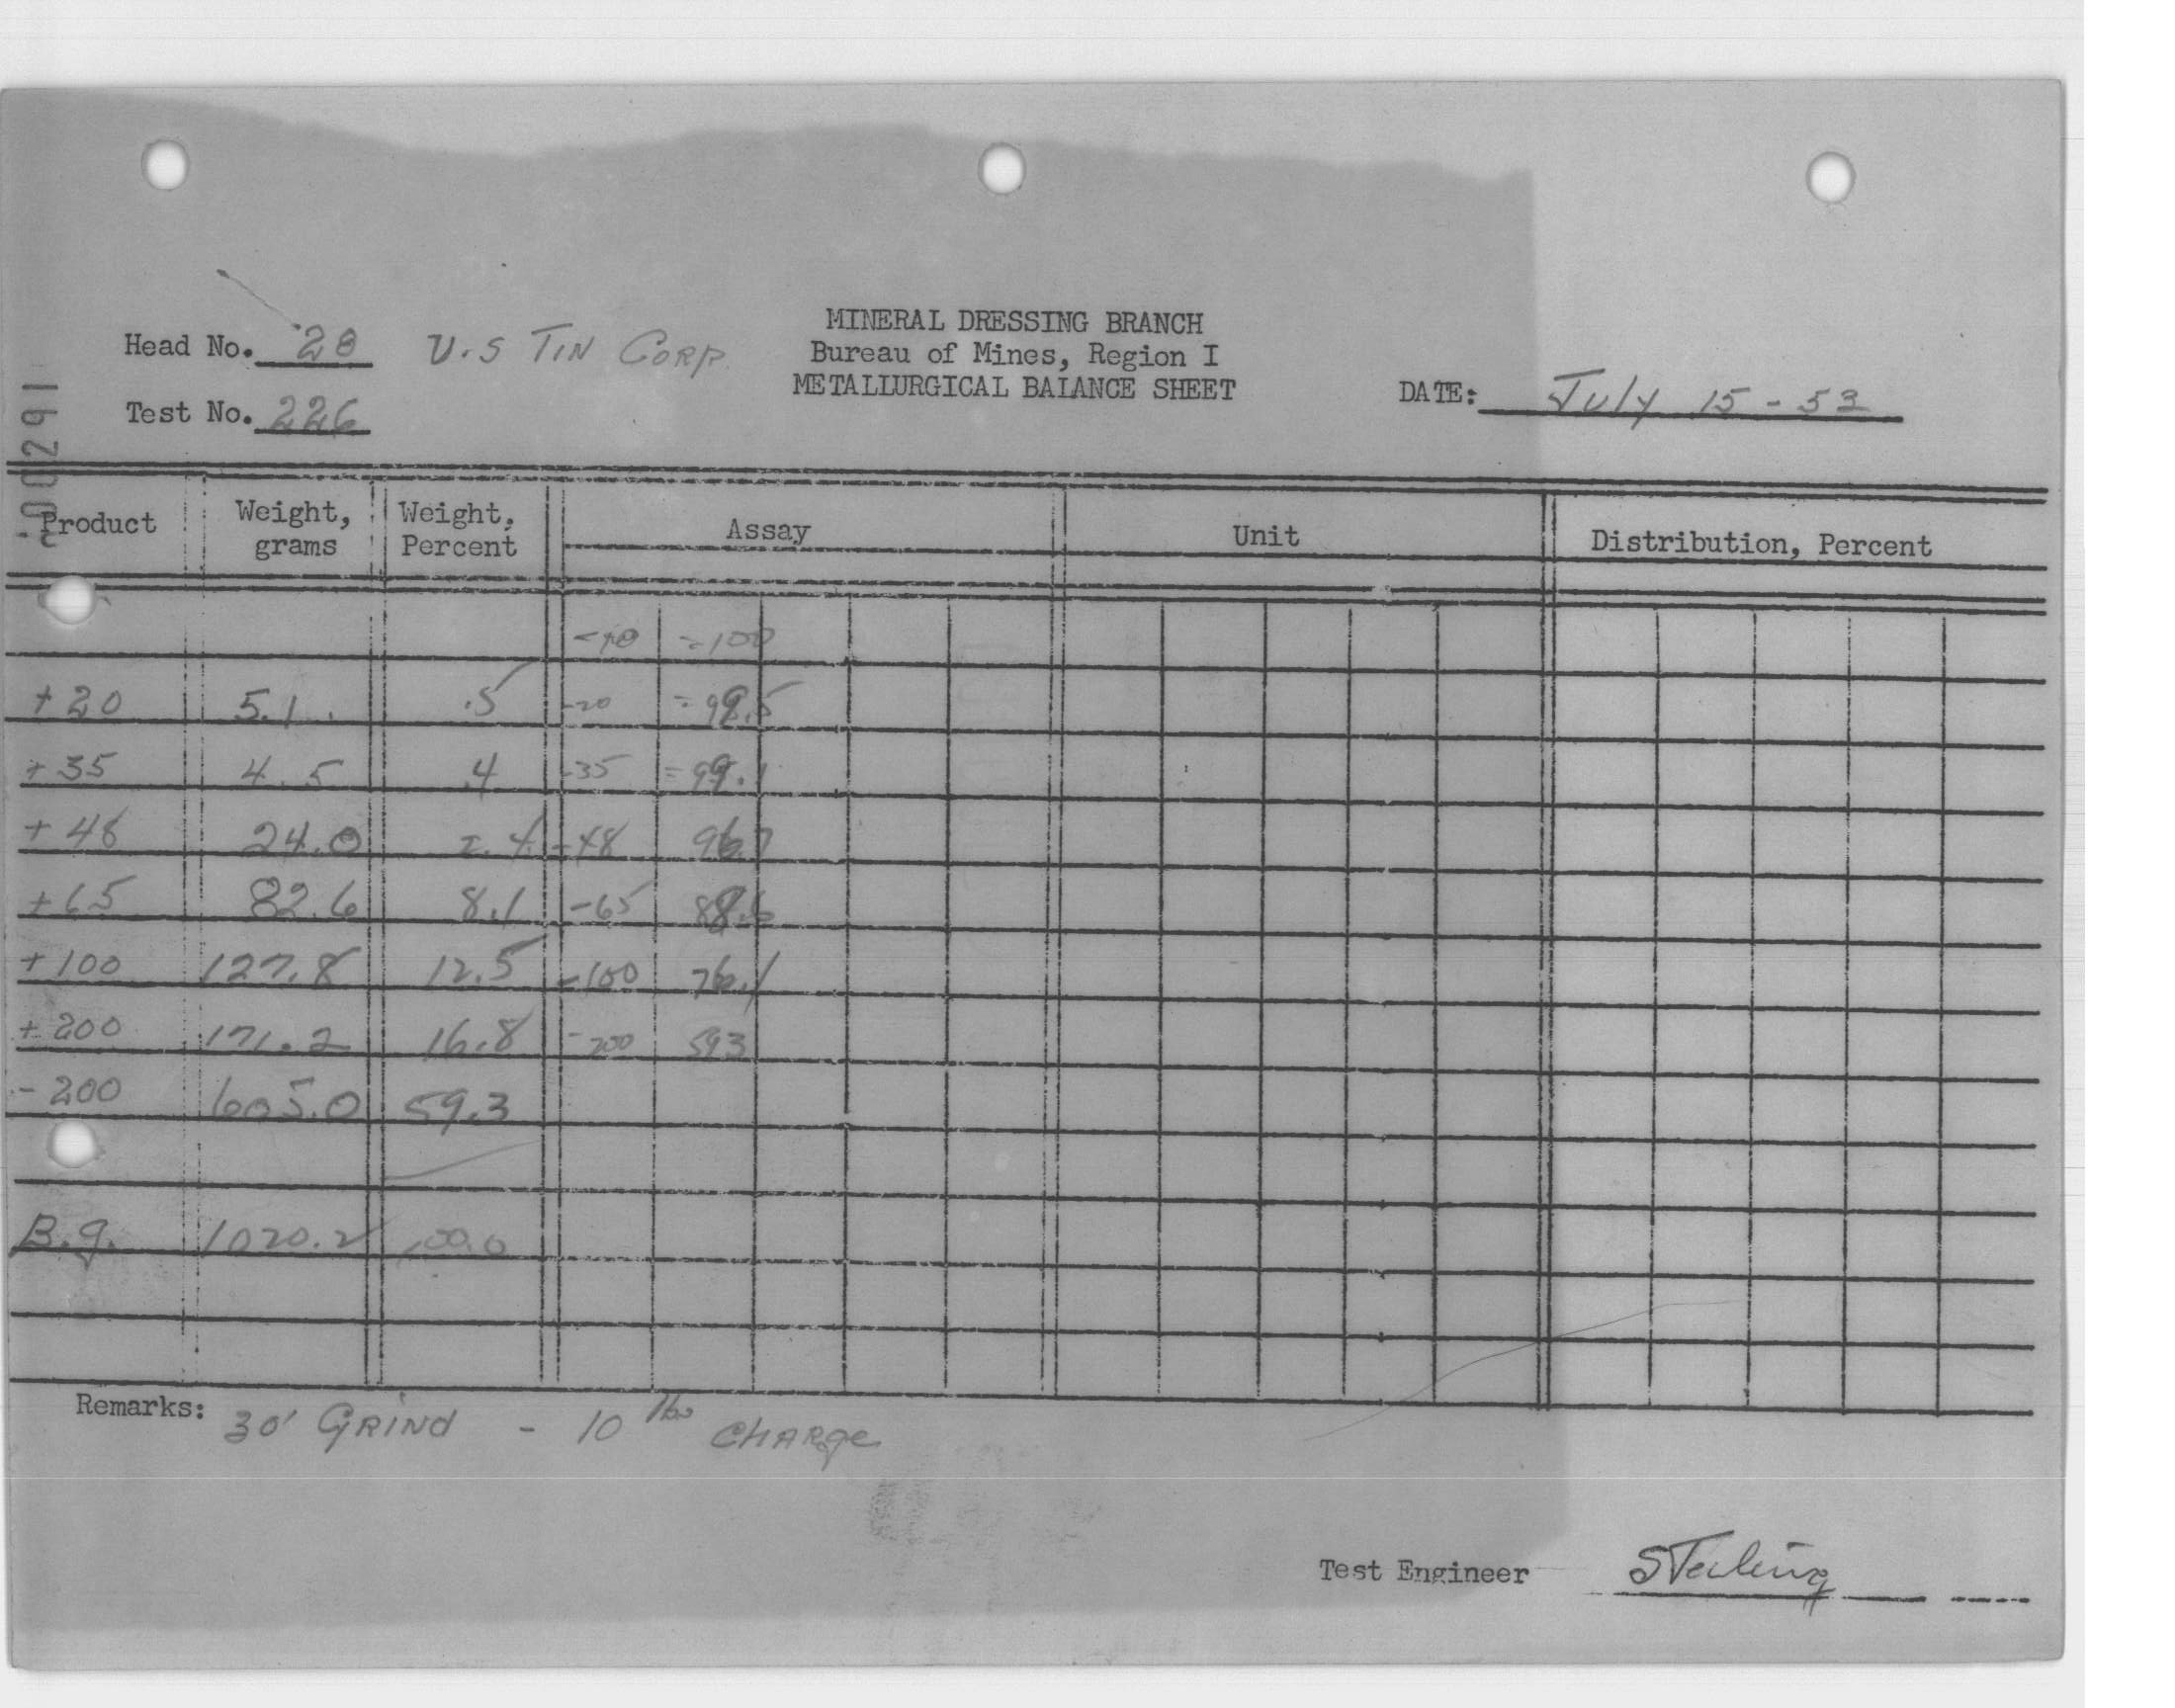 MINERAL DRESSING BRANCH
Head No. 28 U.S TIN CORP. Bureau of Mines, Region I
METALLURGICAL BALANCE SHEET DATE: July 15 - 53
Test No. 226
200291
Product Weight, grams Weight, Percent Assay Unit Distribution, Percent
= 100
+20 5.1 .5 -20 = 99.5
+35 4.5 .4 -35 = 99.1
+48 24.0 2.4 -48 96.7
+65 82.6 8.1 -65 88.6
+100 127.8 12.5 -100 76.1
+200 171.2 16.8 -200 593
-200 605.0 59.3
B.g. 1020.2 100.0
Remarks: 30' GRIND - 10 lbs CHARge
Test Engineer Sterling